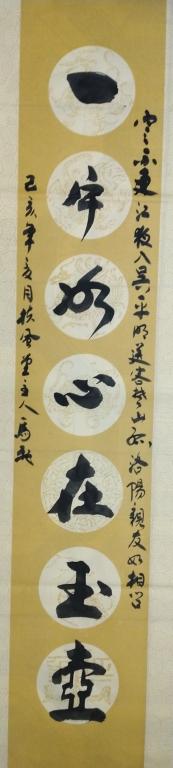 寒雨連江夜入吳平明送客楚山孤洛陽親友如相問
一片冰心在玉壺
己亥年夏月扶風堂主人馬